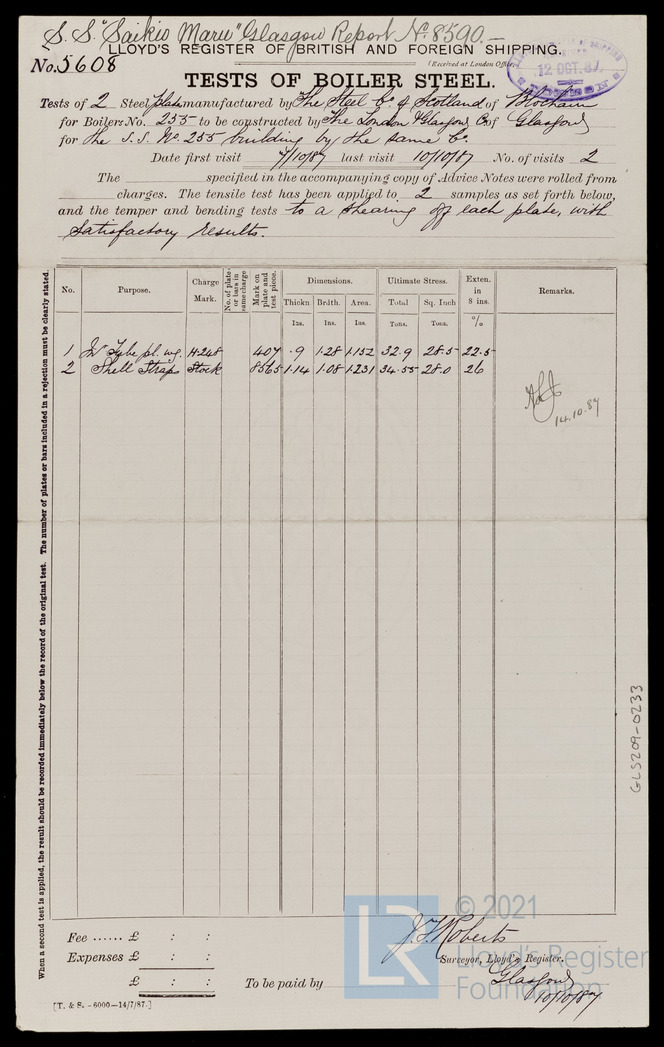 S. S. "Saikio Maru" Glasgow Report No. 8590.—
LLOYD'S REGISTER OF BRITISH AND FOREIGN SHIPPING.
No. 5608
(Received at London Office,
12 OCT. 87
TESTS OF BOILER STEEL.
Tests of 2 Steel plates manufactured by The Steel Co. of Scotland of Blochairn
for Boilers No. 255 to be constructed by The London & Glasgow Co. of Glasgow
for the S.S. No. 255 building by the same Co.
Date first visit 7/10/87 last visit 10/10/87 No. of visits 2
The specified in the accompanying copy of Advice Notes were rolled from
charges. The tensile test has been applied to 2 samples as set forth below,
and the temper and bending tests to a shearing off each plate, with
satisfactory results.
No. Purpose. Charge Mark. No. of plates or bars in same charge Mark on plate and test piece. Dimensions. Ultimate Stress. Exten. in 8 ins. Remarks.
Thickn Brdth. Area. Total Sq. Inch
Ins. Ins. Ins. Tons. Tons. %
1 pl. wg. H248 407 .9 1.28 1.152 32.9 28.5 22.5
2 Shell Straps Stock 8565 1.14 1.08 1.231 34.55 28.0 26
14.10.87
When a second test is applied, the result should be recorded immediately below the record of the original test. The number of plates or bars included in a rejection must be clearly stated.
GLS209-0233
Fee ...... £ : :
Expenses £ : :
£ : :
To be paid by
J. F. Roberts
Surveyor, Lloyd's Register.
Glasgow
10/10/87
[T. & S. - 6000—14/7/87.]
LR
© 2021
Lloyd's Register
Foundation